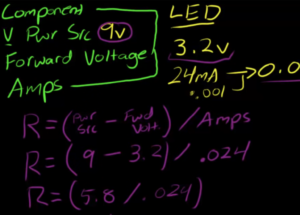 Component
V Pwr Src 9v
Forward Voltage
Amps
LED
3.2v
24mA
.001
0.0
R=(Pwr Src - Fwd Volt.) / Amps
R=(9 - 3.2) / .024
R=(5.8 / .024)